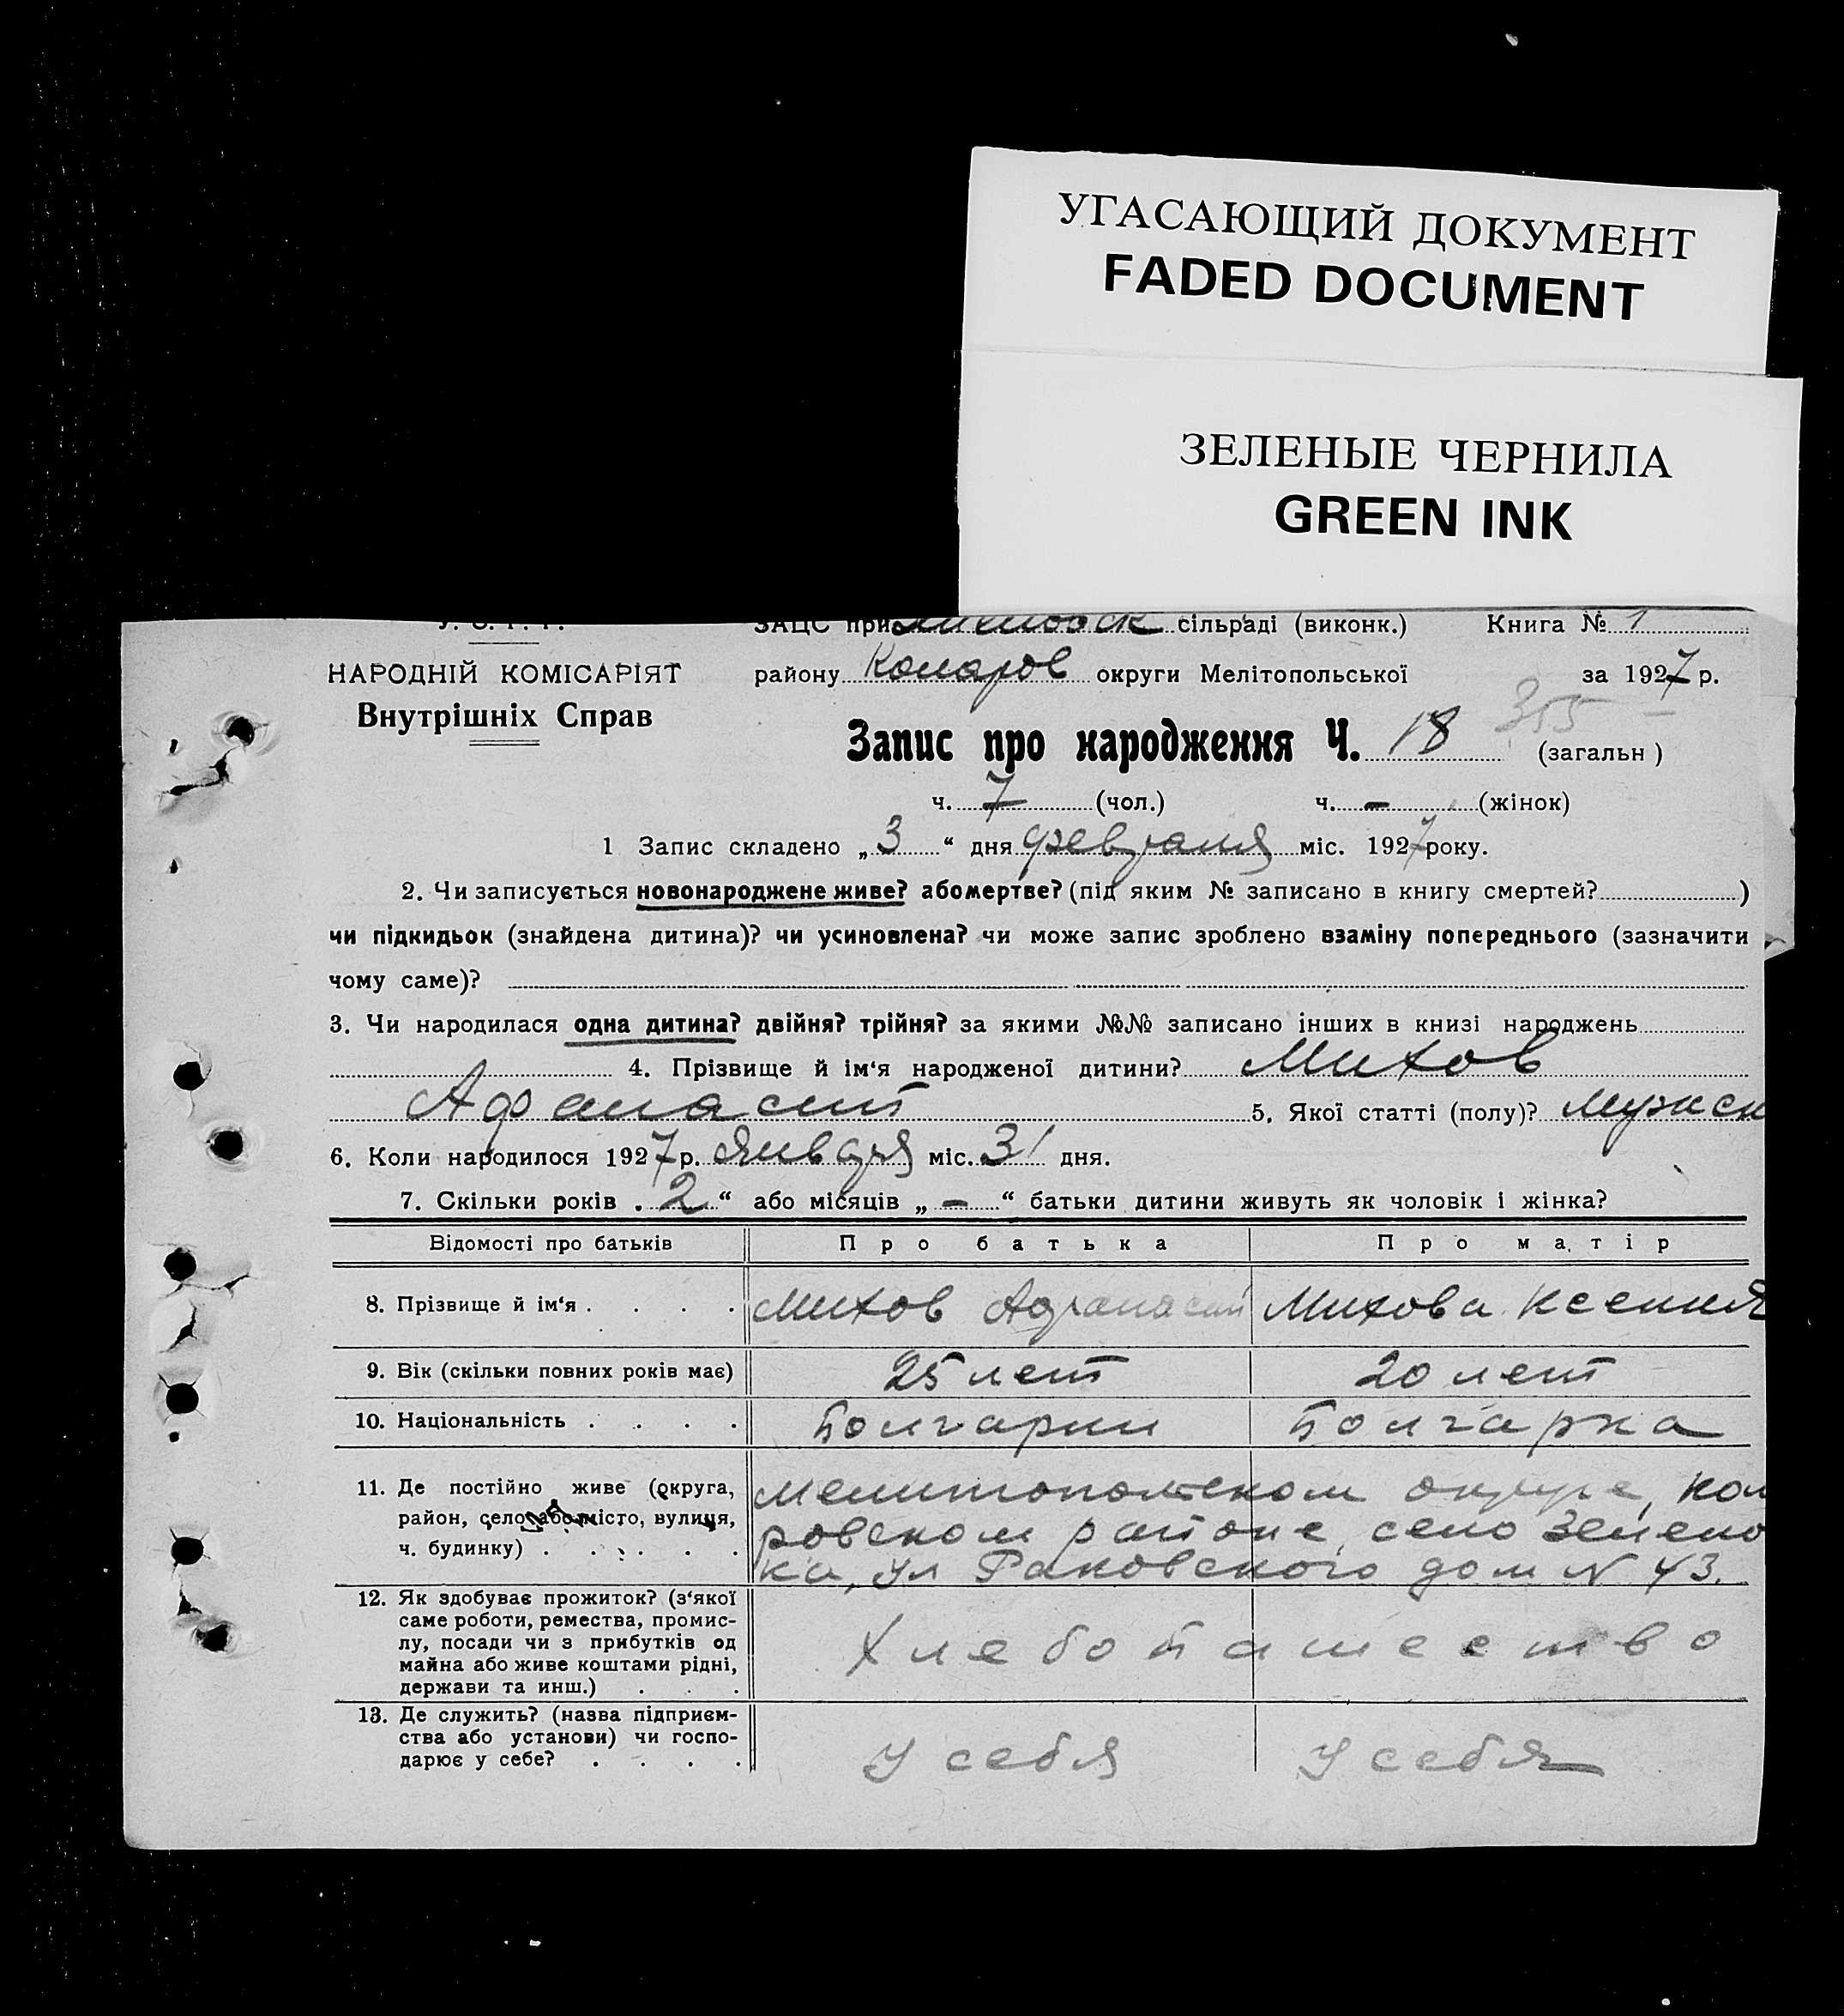 УГАСАЮЩИЙ ДОКУМЕНТ
FADED DOCUMENT
ЗЕЛЕНЫЕ ЧЕРНИЛА
GREEN INK
ЗАЦС при сільраді (виконк.) Книга № 1
НАРОДНІЙ КОМІСАРІЯТ району Комаров округи Мелітопольської за 1927 р.
Внутрішніх Справ
355
Запис про народження Ч. 18 (загальн)
ч. 7 (чол.) ч. - (жінок)
1 Запис складено „3“ дня февраля міс. 1927 року.
2. Чи записується новонароджене живе? або мертве? (під яким № записано в книгу смертей? )
чи підкидьок (знайдена дитина)? чи усиновлена? чи може запис зроблено взаміну попереднього (зазначити
чому саме)?
3. Чи народилася одна дитина? двійня? трійня? за якими №№ записано інших в книзі народжень
4. Прізвище й ім‘я народженої дитини? Митов
Афанасий 5. Якої статті (полу)? мужск
6. Коли народилося 1927 р. Января міс. 31 дня.
7. Скільки років „2“ або місяців „-“ батьки дитини живуть як чоловік і жінка?
Відомості про батьків Про батька Про матір
8. Прізвище й ім‘я . . . . Митов Афанасий Митова Ксения
9. Вік (скільки повних років має) 25 лет 20 лет
10. Національність . . . . Болгарин Болгарка
11. Де постійно живе (округа, Мелитопольском округе, Кома
район, село або місто, вулиця, ровском районе, село Зелено
ч. будинку) . . . . . ка, ул Раковского дом N 43.
12. Як здобуває прожиток? (з‘якої
саме роботи, ремества, промис-
лу, посади чи з прибутків од Хлебопашество
майна або живе коштами рідні,
держави та инш.) . . .
13. Де служить? (назва підприєм-
ства або установи) чи госпо- У себя У себя
дарює у себе? . . . .